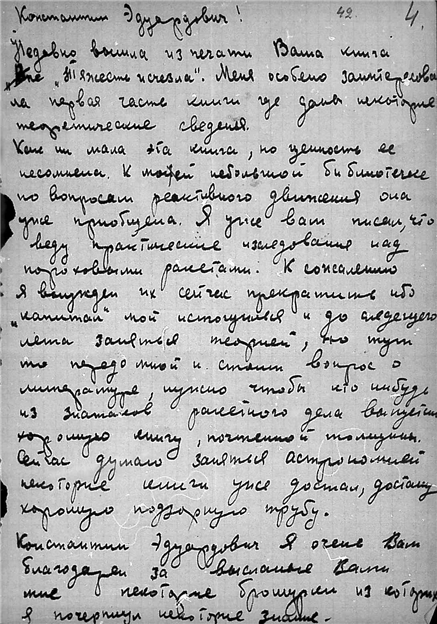 Константин Эдуардович! 42. 4.
Недавно вышла из печати Ваша книга
"Тяжесть исчезла". Меня особено заинтересова
ла первая часть книги где даны некоторые
теоретические сведения.
Как ни мала эта книга, но ценность ее
несомнена. К моей небольшой библиотечке
по вопросам реактивного движения она
уже приобщена. Я уже вам писал, что
веду практические изследования над
пороховыми ракетами. К сожалению
я вынужден их сейчас прекратить ибо
"капитал" мой истощился и до следущего
лета заняться теорией, но тут
то передомной и стоит вопрос о
литературе, нужно чтобы кто нибудь
из знатаков ракетного дела выпустил
хорошую книгу, почтенной толщины.
Сейчас думаю заняться астрономией
некоторые книги уже достал, достану
хорошую подзорную трубу.
Константин Эдуардович Я очень Вам
благодарен за высланые Вами
мне некоторые брошурки из которых
я почерпнул некоторые знания.